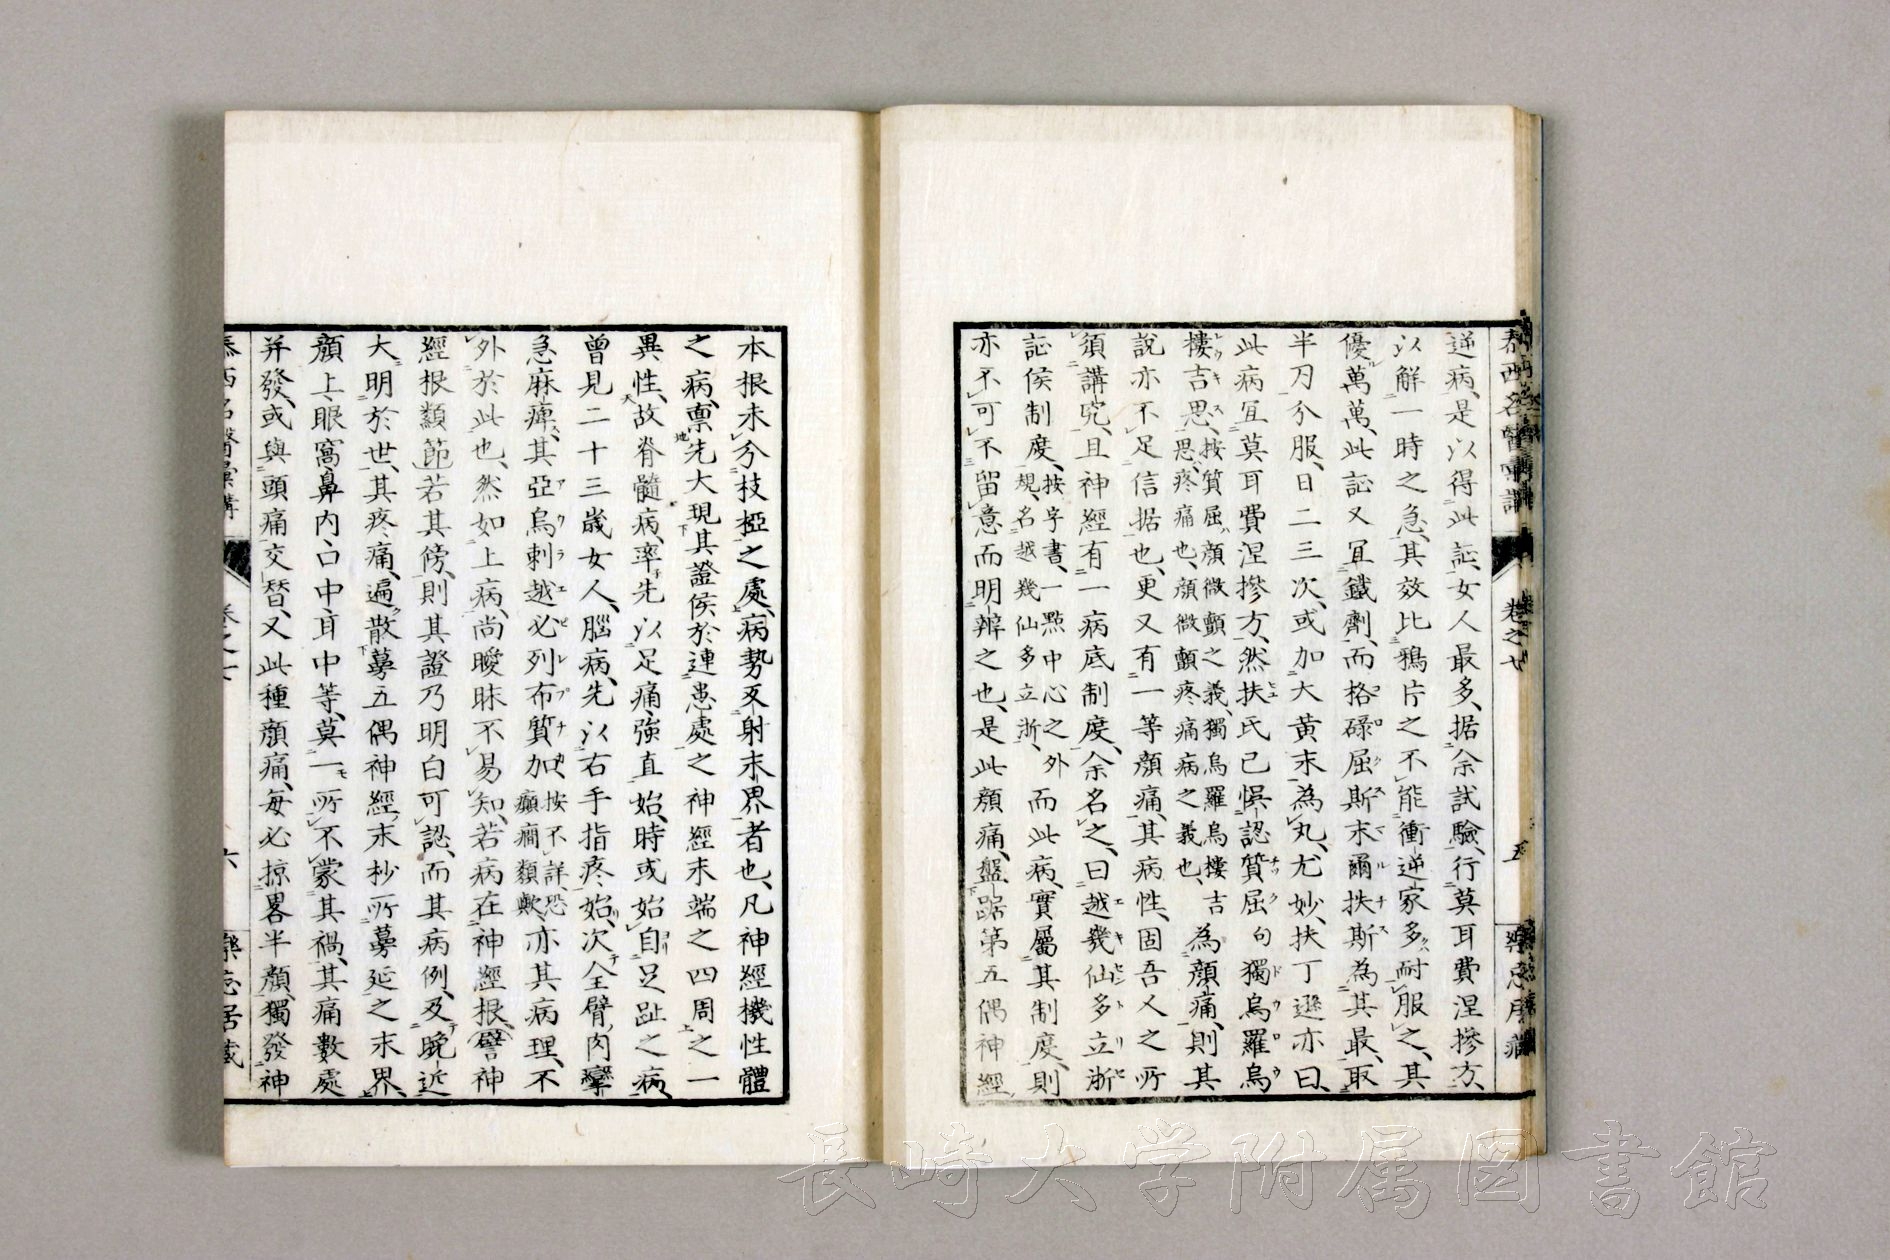 逆病、是以得此証、女人最多、据余試驗、行莫耳費涅摻方、
以解一時之急、其效比鴉片之不能衝逆家多耐服之、其
優萬萬、此証又冝鐵劑、而格碌屈斯末爾扶斯為其最、取
半刀分服、日二三次、或加大黄末為丸、尤妙、扶丁遜亦曰、
此病冝莫耳費涅摻方、然扶氏已悮認質屈句獨烏羅烏
按質屈、顔微顫之義、獨烏羅烏摟吉
摟吉思、思、疼痛也、顔微顫疼痛病之義也、為顔痛、則其
說亦不足信据也、更又有一等顔痛、其病性、固吾人之所
須講究、且神經有一病底制度、余名之、曰越幾仙多立浙
按字書、一點中心之外
証侯制度、規、名越幾仙多立浙、而此病、實屬其制度、則
亦不可不留意而明辨之也、是此顔痛、盤踞第五偶神經、
卷之七
五
本根未分枝椏之處、病勢叉射末界者也、凡神經機性體
之病、禀先大現其證侯於連患處之神經末端之四周之一
異性、故脊髓病、率先以足痛、強直始、時或始自足趾之病、
曾見二十三歲女人、腦病、先以右手指疼始、次全臂、肉攣
急麻痺、其亞烏剌越必列布質加、按不詳、恐
癲癇類歟、亦其病理、不
外於此也、然如上病、尚曖昧不易知、若病在神經根譬神
經根類節若其傍、則其證乃明白可認、而其病例、及晩近
大明於世、其疼痛、遍散蔓五偶神經、末抄所蔓延之末界、
顔上、眼窩、鼻内、口中、耳中等、莫一所不蒙其禍、其痛數處
并發、或與頭痛交替、又此種顔痛、每必掠畧半顔、獨發神
長崎大学附属図書館